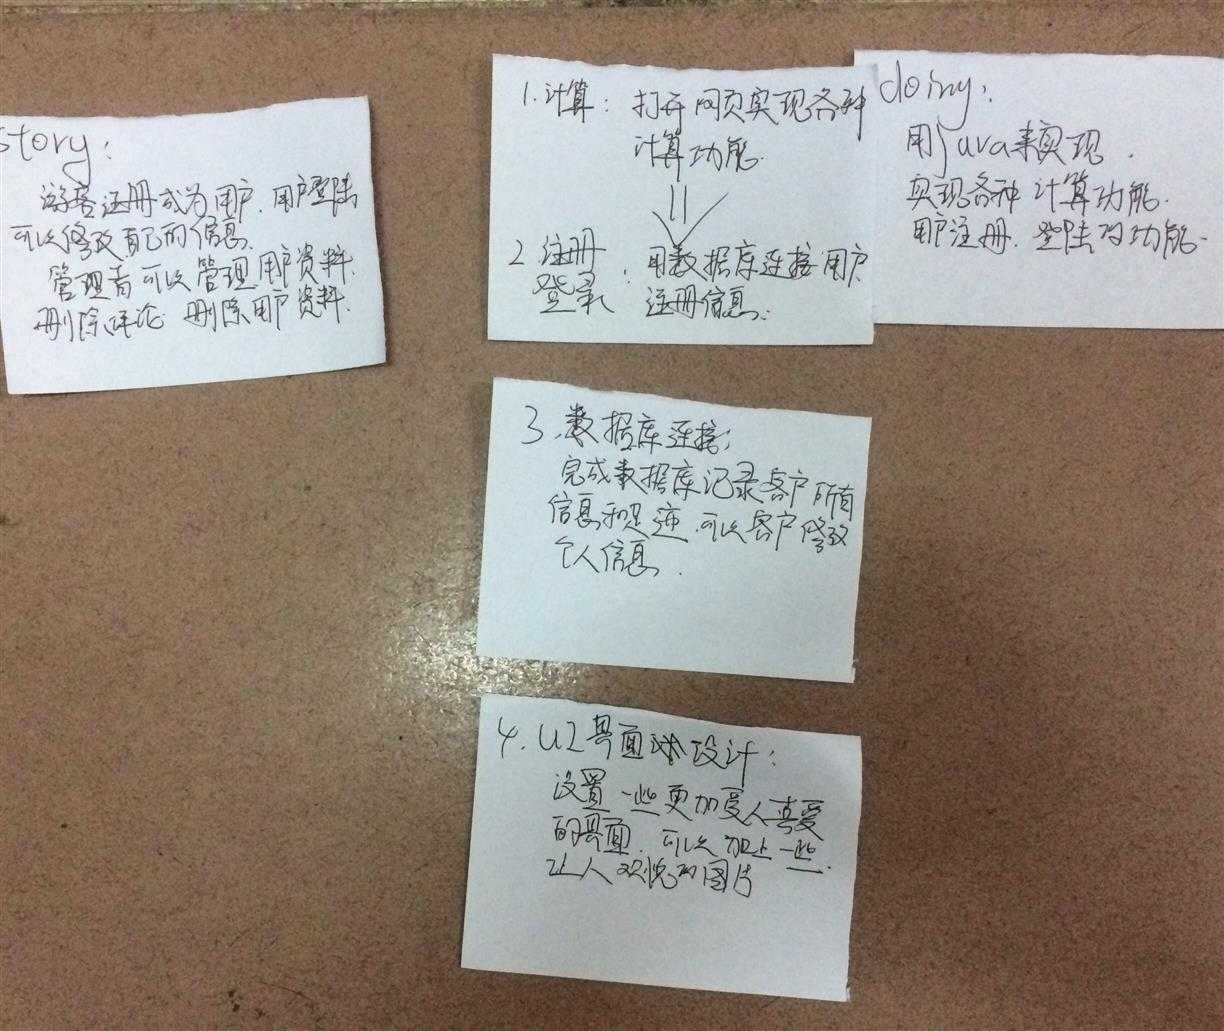 story:
游客注册成为用户.用户登陆
可以修改自己的信息.
管理者可以管理用户资料.
删除评论 删除用户资料.
1.计算: 打开网页实现各种
计算功能.
2.注册
登录: 用数据库连接用户
注册信息.
doing:
用java来实现.
实现各种计算功能.
用户注册.登陆的功能.
3.数据库连接:
完成数据库记录客户所有
信息和 .可以客户修改
个人信息.
4.UI界面 设计:
设置一些更加受人喜爱
的界面.可以加上一些
让人欢悦的图片